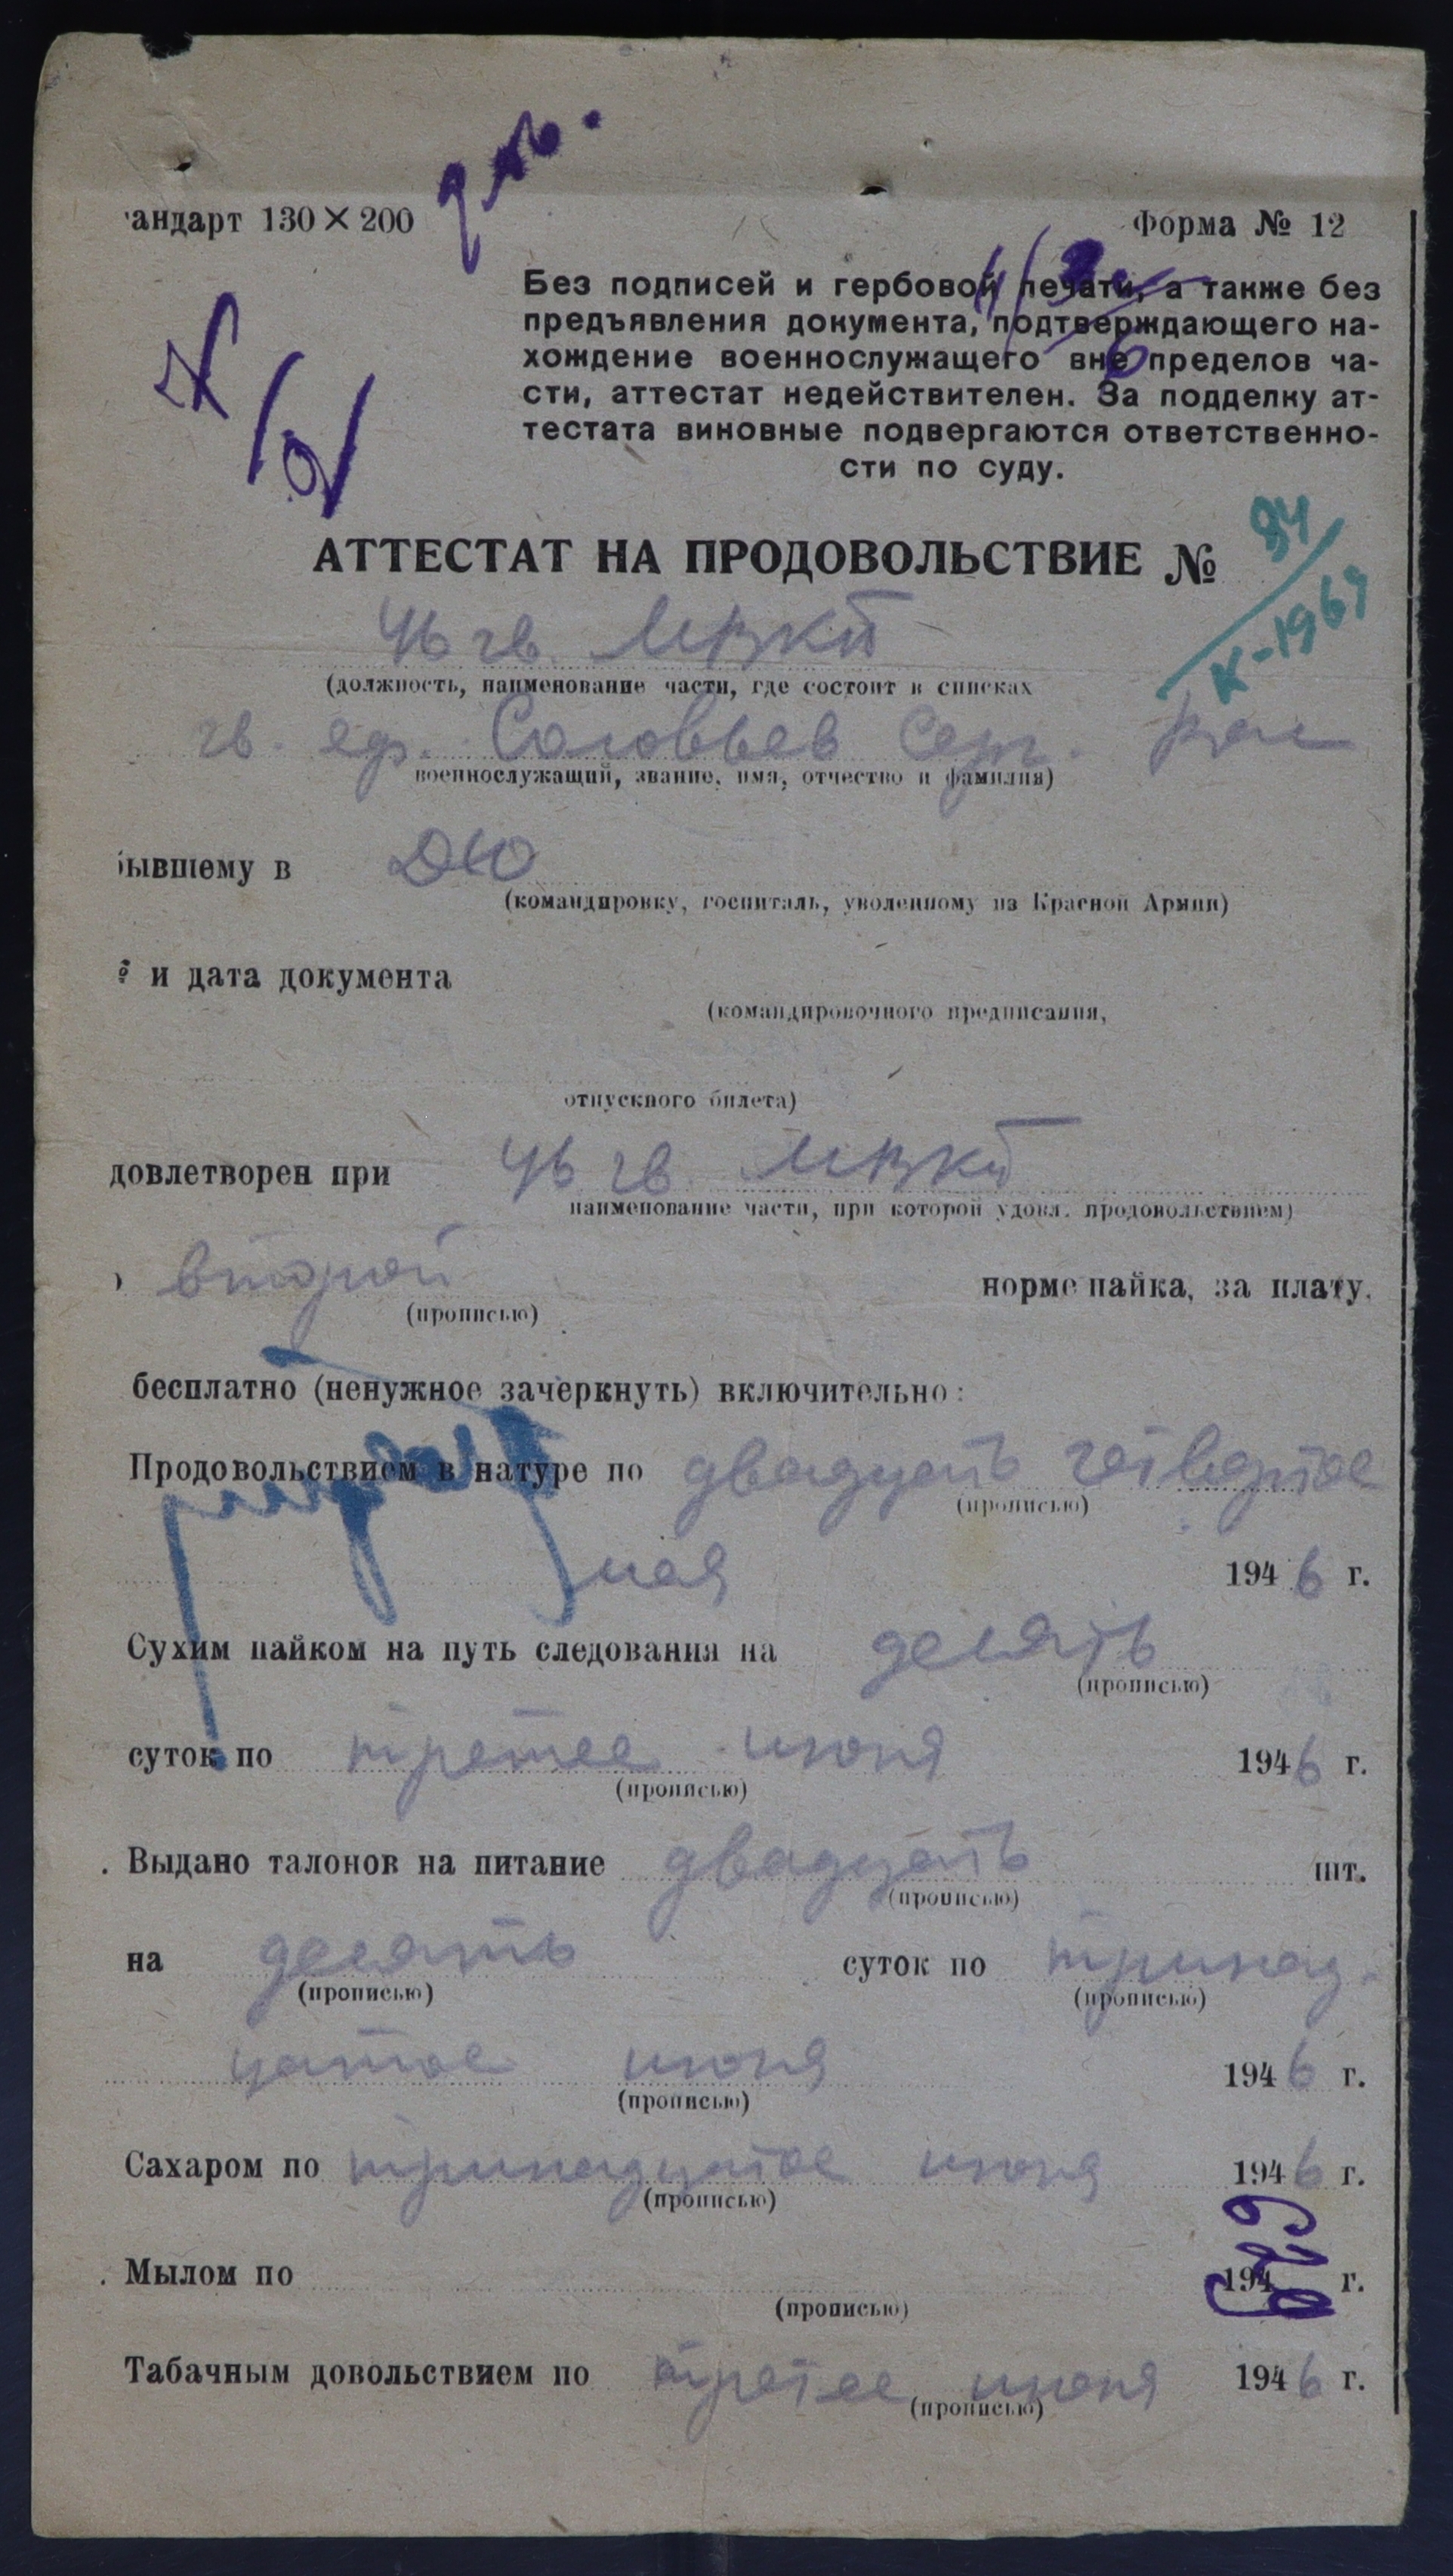 андарт 130×200
Форма № 12
Без подписей и гербовой печати, а также без
предъявления документа, подтверждающего на-
хождение военнослужащего вне пределов ча-
сти, аттестат недействителен. За подделку ат-
тестата виновные подвергаются ответственно-
сти по суду.
АТТЕСТАТ НА ПРОДОВОЛЬСТВИЕ №
К-1967
46 гв.
(должность, наименование части, где состоит в списках
гв. еф. Соловьев Серг.
военнослужащий, звание, имя, отчество и фамилия)
бывшему в
(командировку, госпиталь, уволенному из Красной Армии)
и дата документа
(командировочного предписания,
отпускного билета)
довлетворен при 46 гв.
наименование части, при которой удовл. продовольствием)
второй норме пайка, за плату.
(прописью)
бесплатно (ненужное зачеркнуть) включительно:
Продовольствием в натуре по двадцать четвертое
(прописью)
мая 1946 г.
Сухим пайком на путь следования на десять
(прописью)
суток по третее июня 1946 г.
(прописью)
. Выдано талонов на питание двадцать шт.
(прописью)
на десять суток по тринад-
(прописью) (прописью)
цатое июня 1946 г.
(прописью)
Сахаром по тринадцатое июня 1946 г.
(прописью)
. Мылом по 194 г.
(прописью)
Табачным довольствием по третее июня 1946 г.
(прописью)